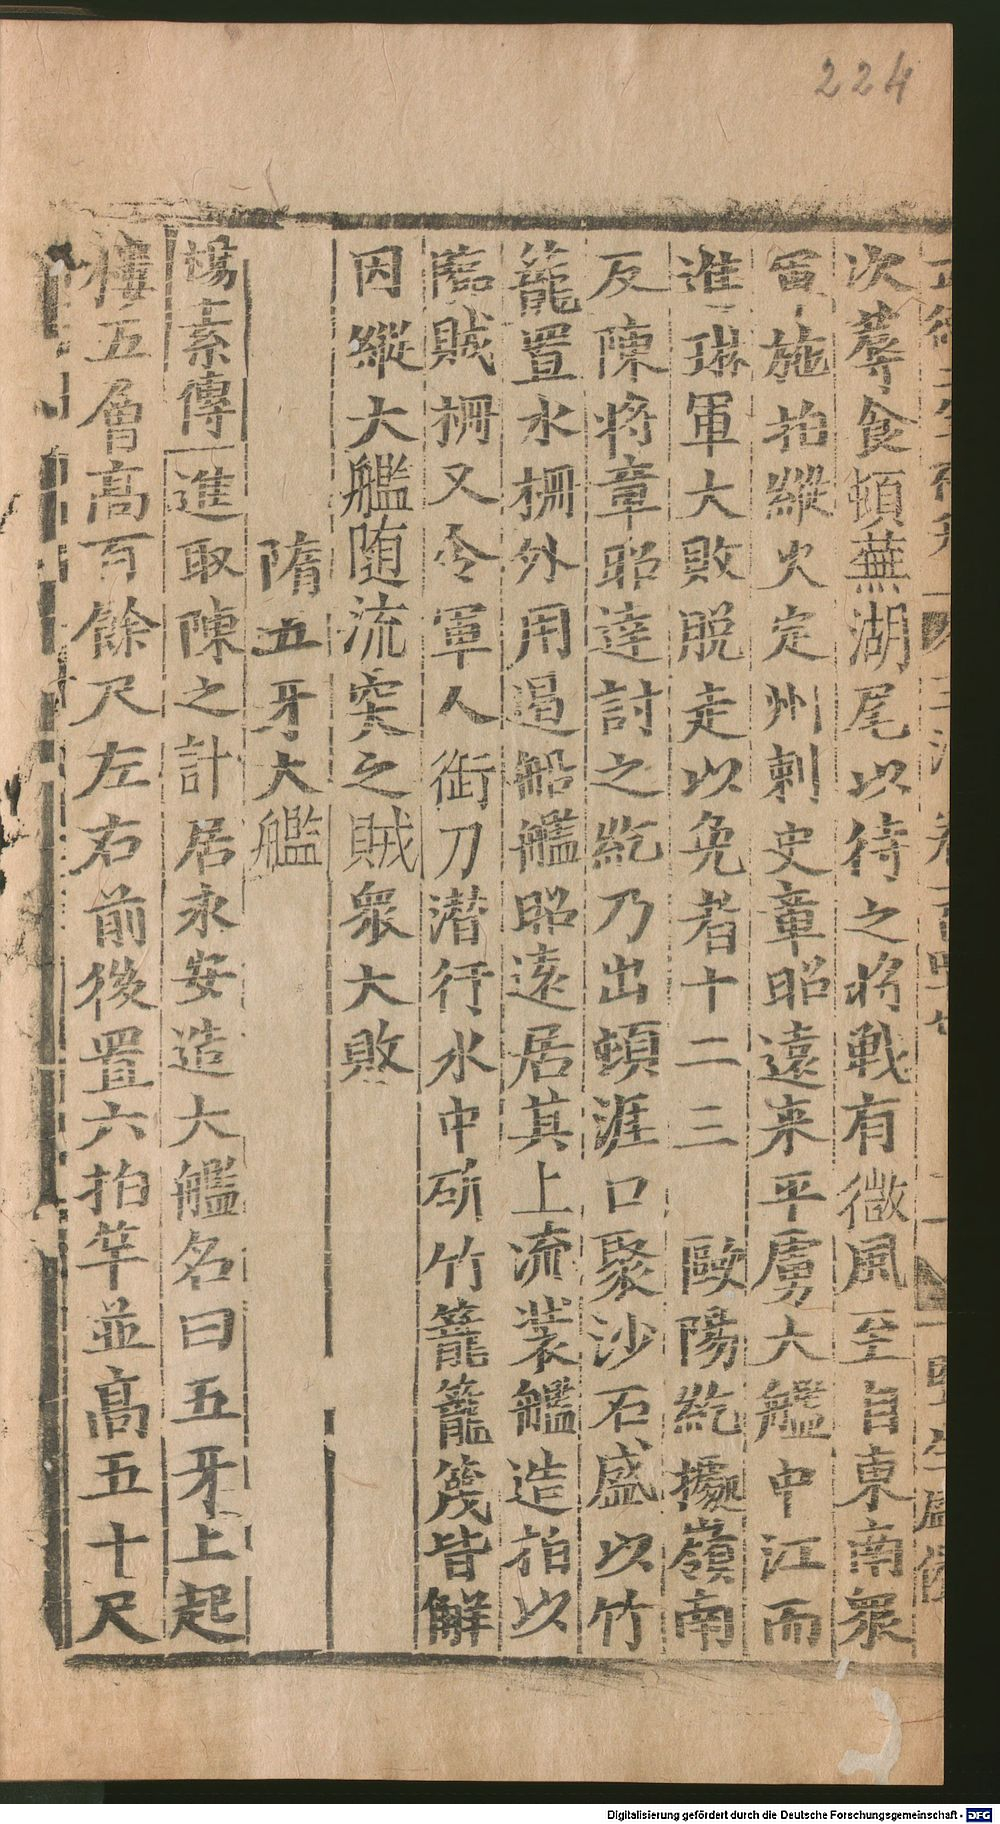 224
次蓐食頓蕪湖尾以待之將戰有微風至自東南衆
軍施拍縱火定州刺史章昭遠来平虜大艦中江而
進琳軍大敗脱走以免者十二三　歐陽紇據嶺南
反陳將章昭達討之紇乃出頓涯口聚沙石盛以竹
籠置水柵外用遏船艦昭遠居其上流装艦造拍以
臨賊柵又令軍人銜刀潜行水中斫竹籠籠篾皆解
因縱大艦随流突之賊衆大敗
隋五牙大艦
楊素傳進取陳之計居永安造大艦名曰五牙上起
樓五層高百餘尺左右前後置六拍竿並高五十尺
Digitalisierung gefördert durch die Deutsche Forschungsgemeinschaft - DFG